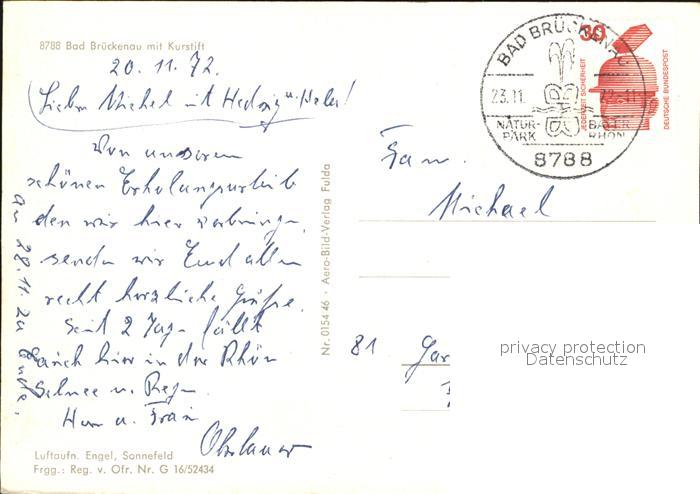 8788 Bad Brückenau mit Kurstift
20. 11. 72.
Lieber Michel mit Hedwig u. Peter!
Von unserem
schönen Erholungsurlaub
den wir hier verbringen,
senden wir Euch allen
recht herzliche Grüße.
Seit 2 Tagen fällt
auch hier in der Rhön
Schnee u. Regen
Herr u. Frau
Oberlauer
am 28.11. zu
Luftaufn. Engel, Sannefeld
Frgg.: Reg. v. Ofr. Nr. G 16/52434
Nr. 0154 46 · Aero-Bild-Verlag Fulda
BAD BRÜCKENAU
23.11. 72-11
NATUR-
PARK
BAYER.
RHÖN
8788
30
JEDERZEIT SICHERHEIT
DEUTSCHE BUNDESPOST
Fam.
Michael
81 Gar
privacy protection
Datenschutz